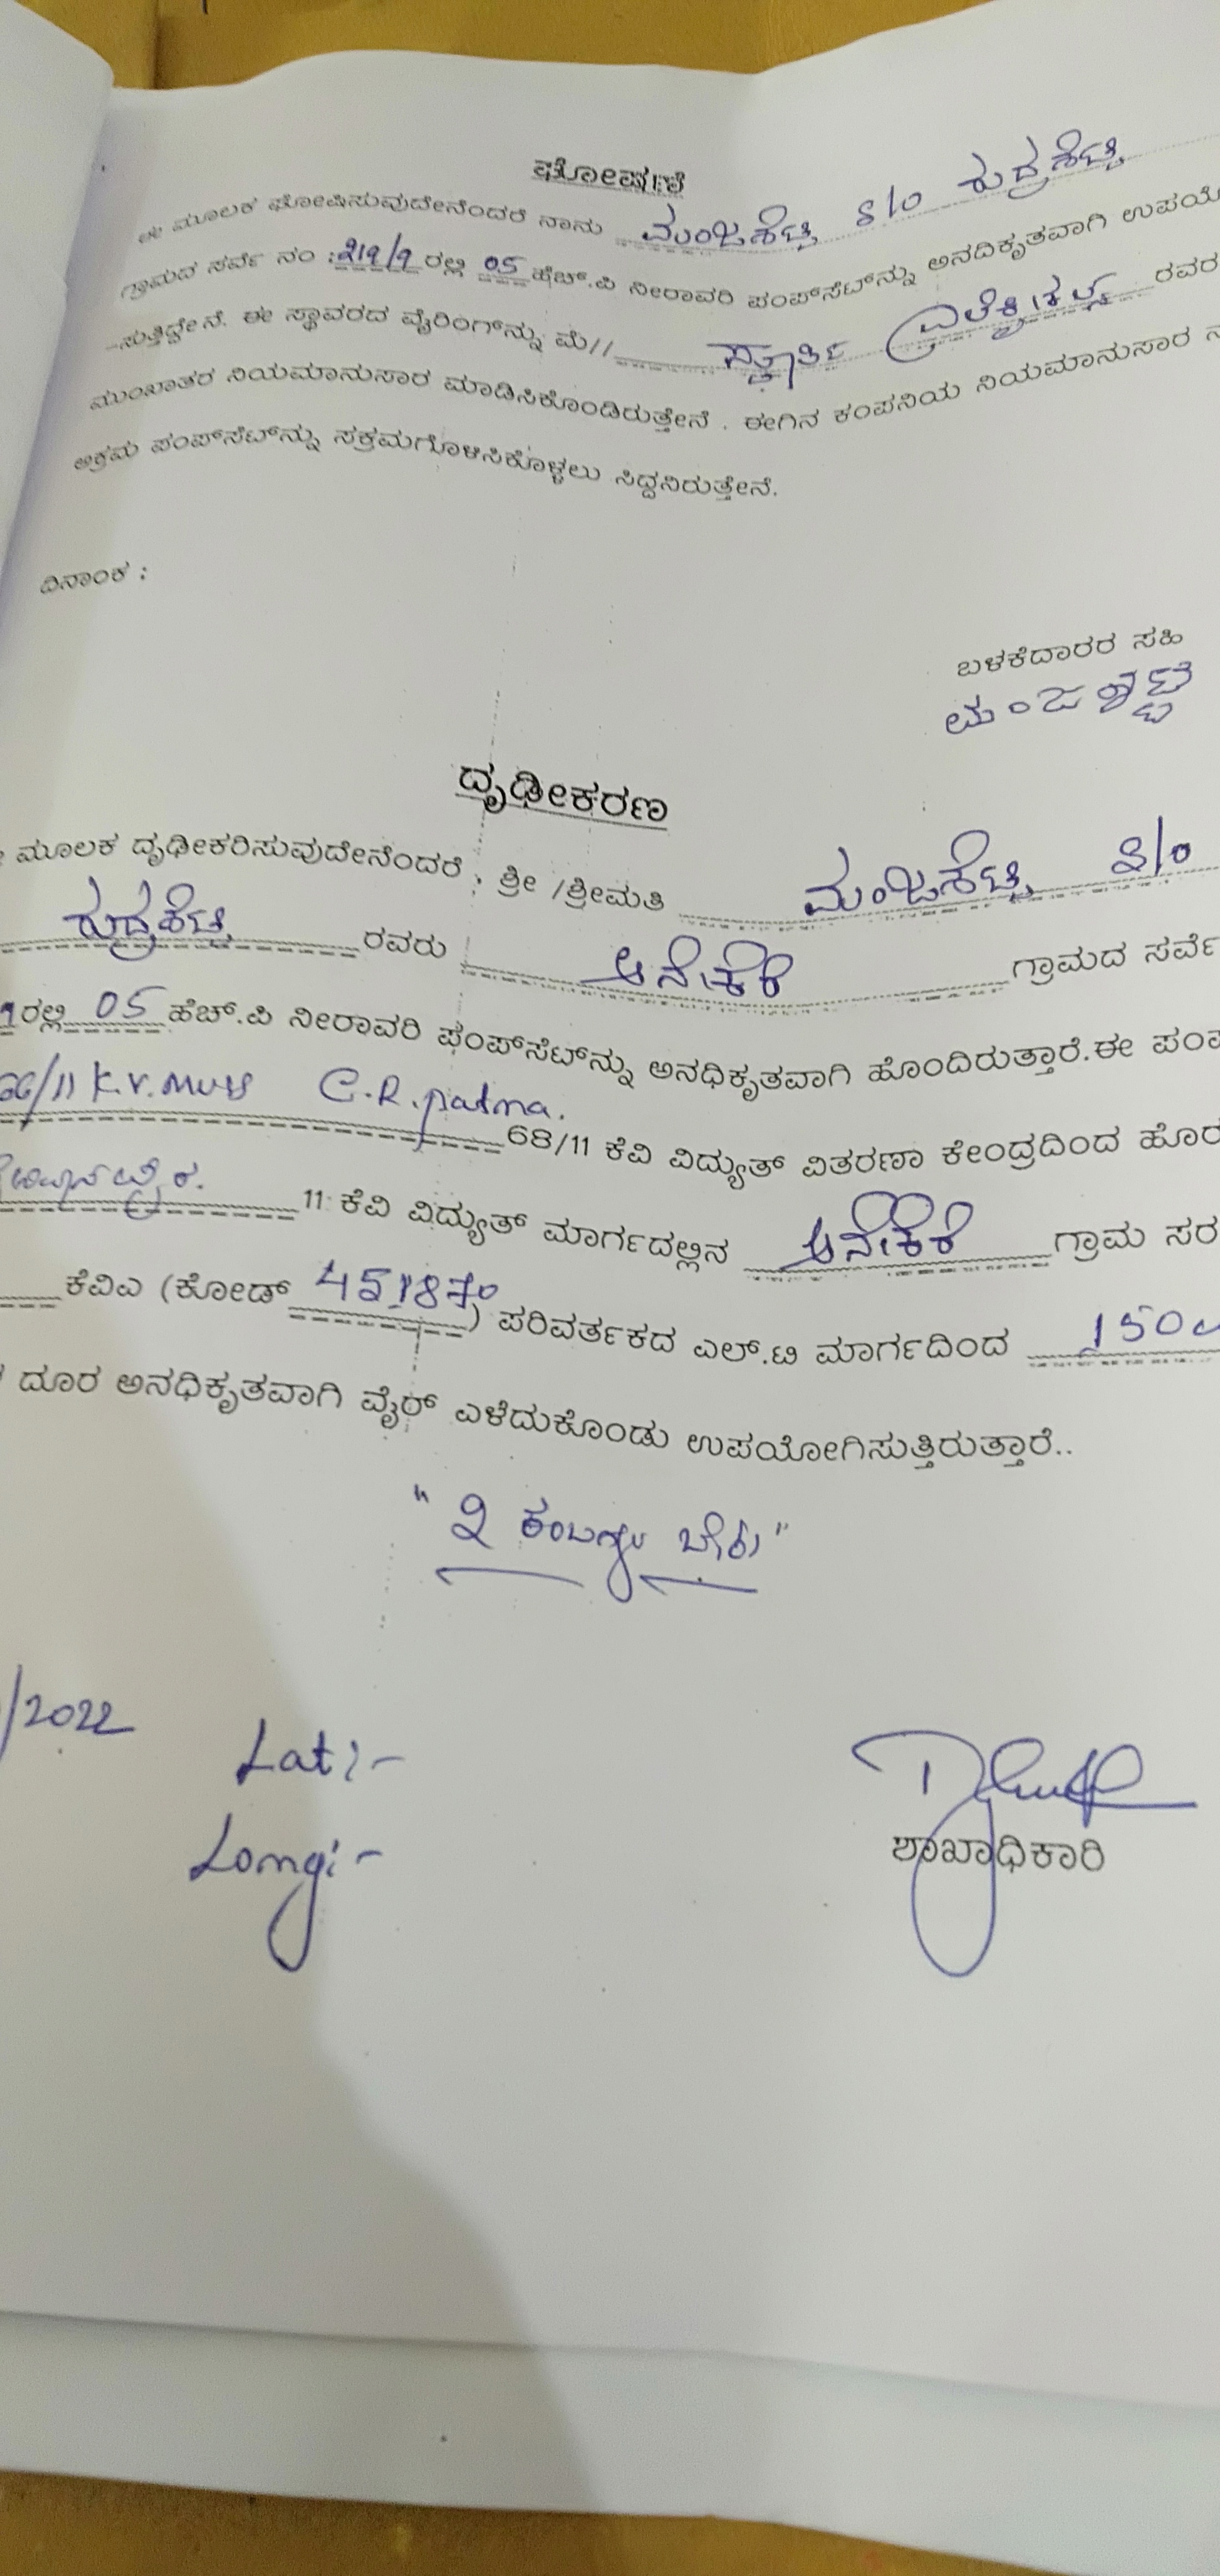 ಘೋಷಣೆ
ಈ ಮೂಲಕ ಘೋಷಿಸುವುದೇನೆಂದರೆ ನಾನು ಮಂಜಶೆಟ್ಟಿ S/o ರುದ್ರಶೆಟ್ಟಿ
ಗ್ರಾಮದ ಸರ್ವೆ ನಂ : ರಲ್ಲಿ 05 ಹೆಚ್.ಪಿ ನೀರಾವರಿ ಪಂಪ್‌ಸೆಟ್‌ನ್ನು ಅನದಿಕೃತವಾಗಿ ಉಪಯೋ
ಸುತ್ತಿದ್ದೇನೆ. ಈ ಸ್ಥಾವರದ ವೈರಿಂಗ್‌ನ್ನು ಮೆ// ಸ್ಪೂರ್ತಿ ರವರ
ಮುಂಖಾತರ ನಿಯಮಾನುಸಾರ ಮಾಡಿಸಿಕೊಂಡಿರುತ್ತೇನೆ . ಈಗಿನ ಕಂಪನಿಯ ನಿಯಮಾನುಸಾರ
ಅಕ್ರಮ ಪಂಪ್‌ಸೆಟ್‌ನ್ನು ಸಕ್ರಮಗೊಳಿಸಿಕೊಳ್ಳಲು ಸಿದ್ದನಿರುತ್ತೇನೆ.
ದಿನಾಂಕ :
ಬಳಕೆದಾರರ ಸಹಿ
ಮಂಜಶೆಟ್ಟಿ
ದೃಢೀಕರಣ
ಮೂಲಕ ದೃಢೀಕರಿಸುವುದೇನೆಂದರೆ , ಶ್ರೀ /ಶ್ರೀಮತಿ ಮಂಜಶೆಟ್ಟಿ S/o
ರುದ್ರಶೆಟ್ಟಿ ರವರು ಆನೇಕೆರೆ ಗ್ರಾಮದ ಸರ್ವೆ
ರಲ್ಲಿ 05 ಹೆಚ್.ಪಿ ನೀರಾವರಿ ಪಂಪ್‌ಸೆಟ್‌ನ್ನು ಅನಧಿಕೃತವಾಗಿ ಹೊಂದಿರುತ್ತಾರೆ.ಈ ಪಂಪ
66/11 K.V. Muss C.R.patna. 68/11 ಕೆವಿ ವಿದ್ಯುತ್ ವಿತರಣಾ ಕೇಂದ್ರದಿಂದ ಹೊರ
11 ಕೆವಿ ವಿದ್ಯುತ್ ಮಾರ್ಗದಲ್ಲಿನ ಆನೇಕೆರೆ ಗ್ರಾಮ ಸರ
ಕೆವಿಎ (ಕೋಡ್ ) ಪರಿವರ್ತಕದ ಎಲ್.ಟಿ ಮಾರ್ಗದಿಂದ 150
ದೂರ ಅನಧಿಕೃತವಾಗಿ ವೈರ್ ಎಳೆದುಕೊಂಡು ಉಪಯೋಗಿಸುತ್ತಿರುತ್ತಾರೆ..
" 2 ಕಂಬಗಳು ಬೇಕು "
/2022
Lat:-
Longi-
ಶಾಖಾಧಿಕಾರಿ